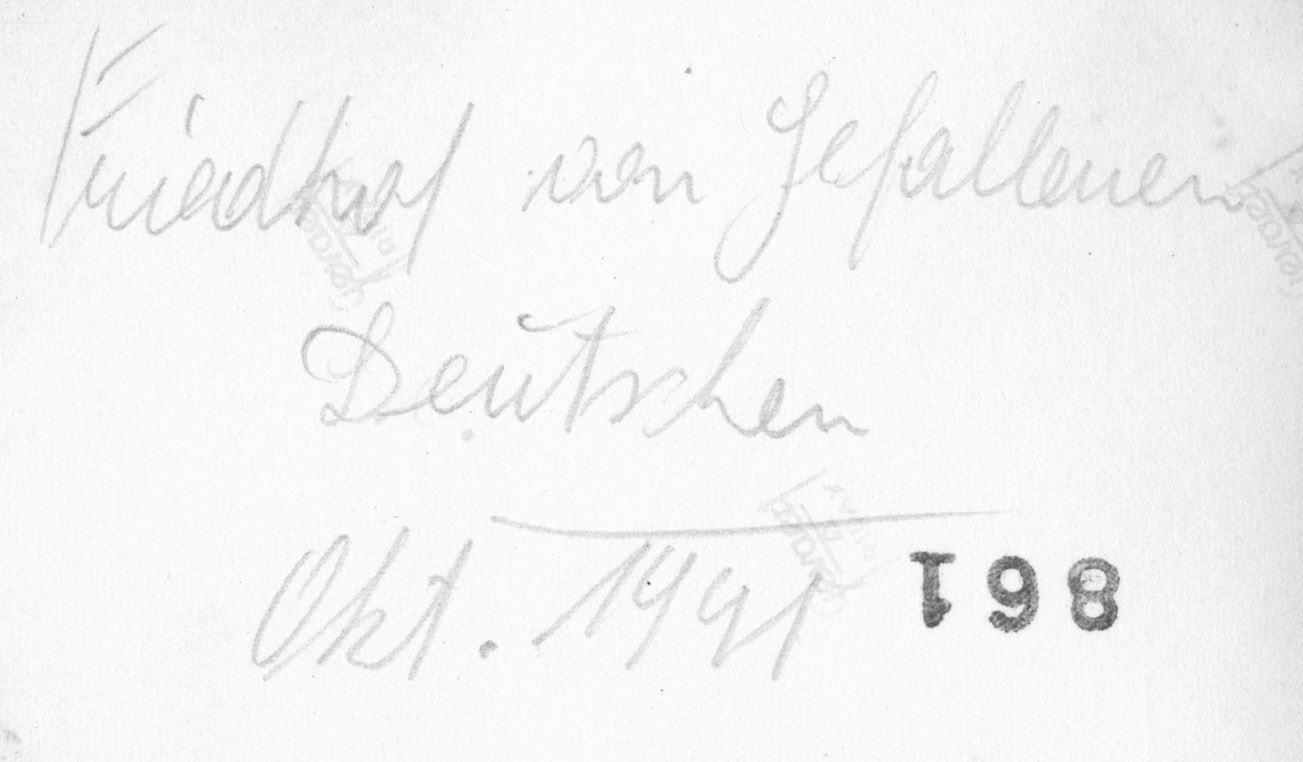 Friedhof von Gefallenen
Deutschen
Okt. 1941
861